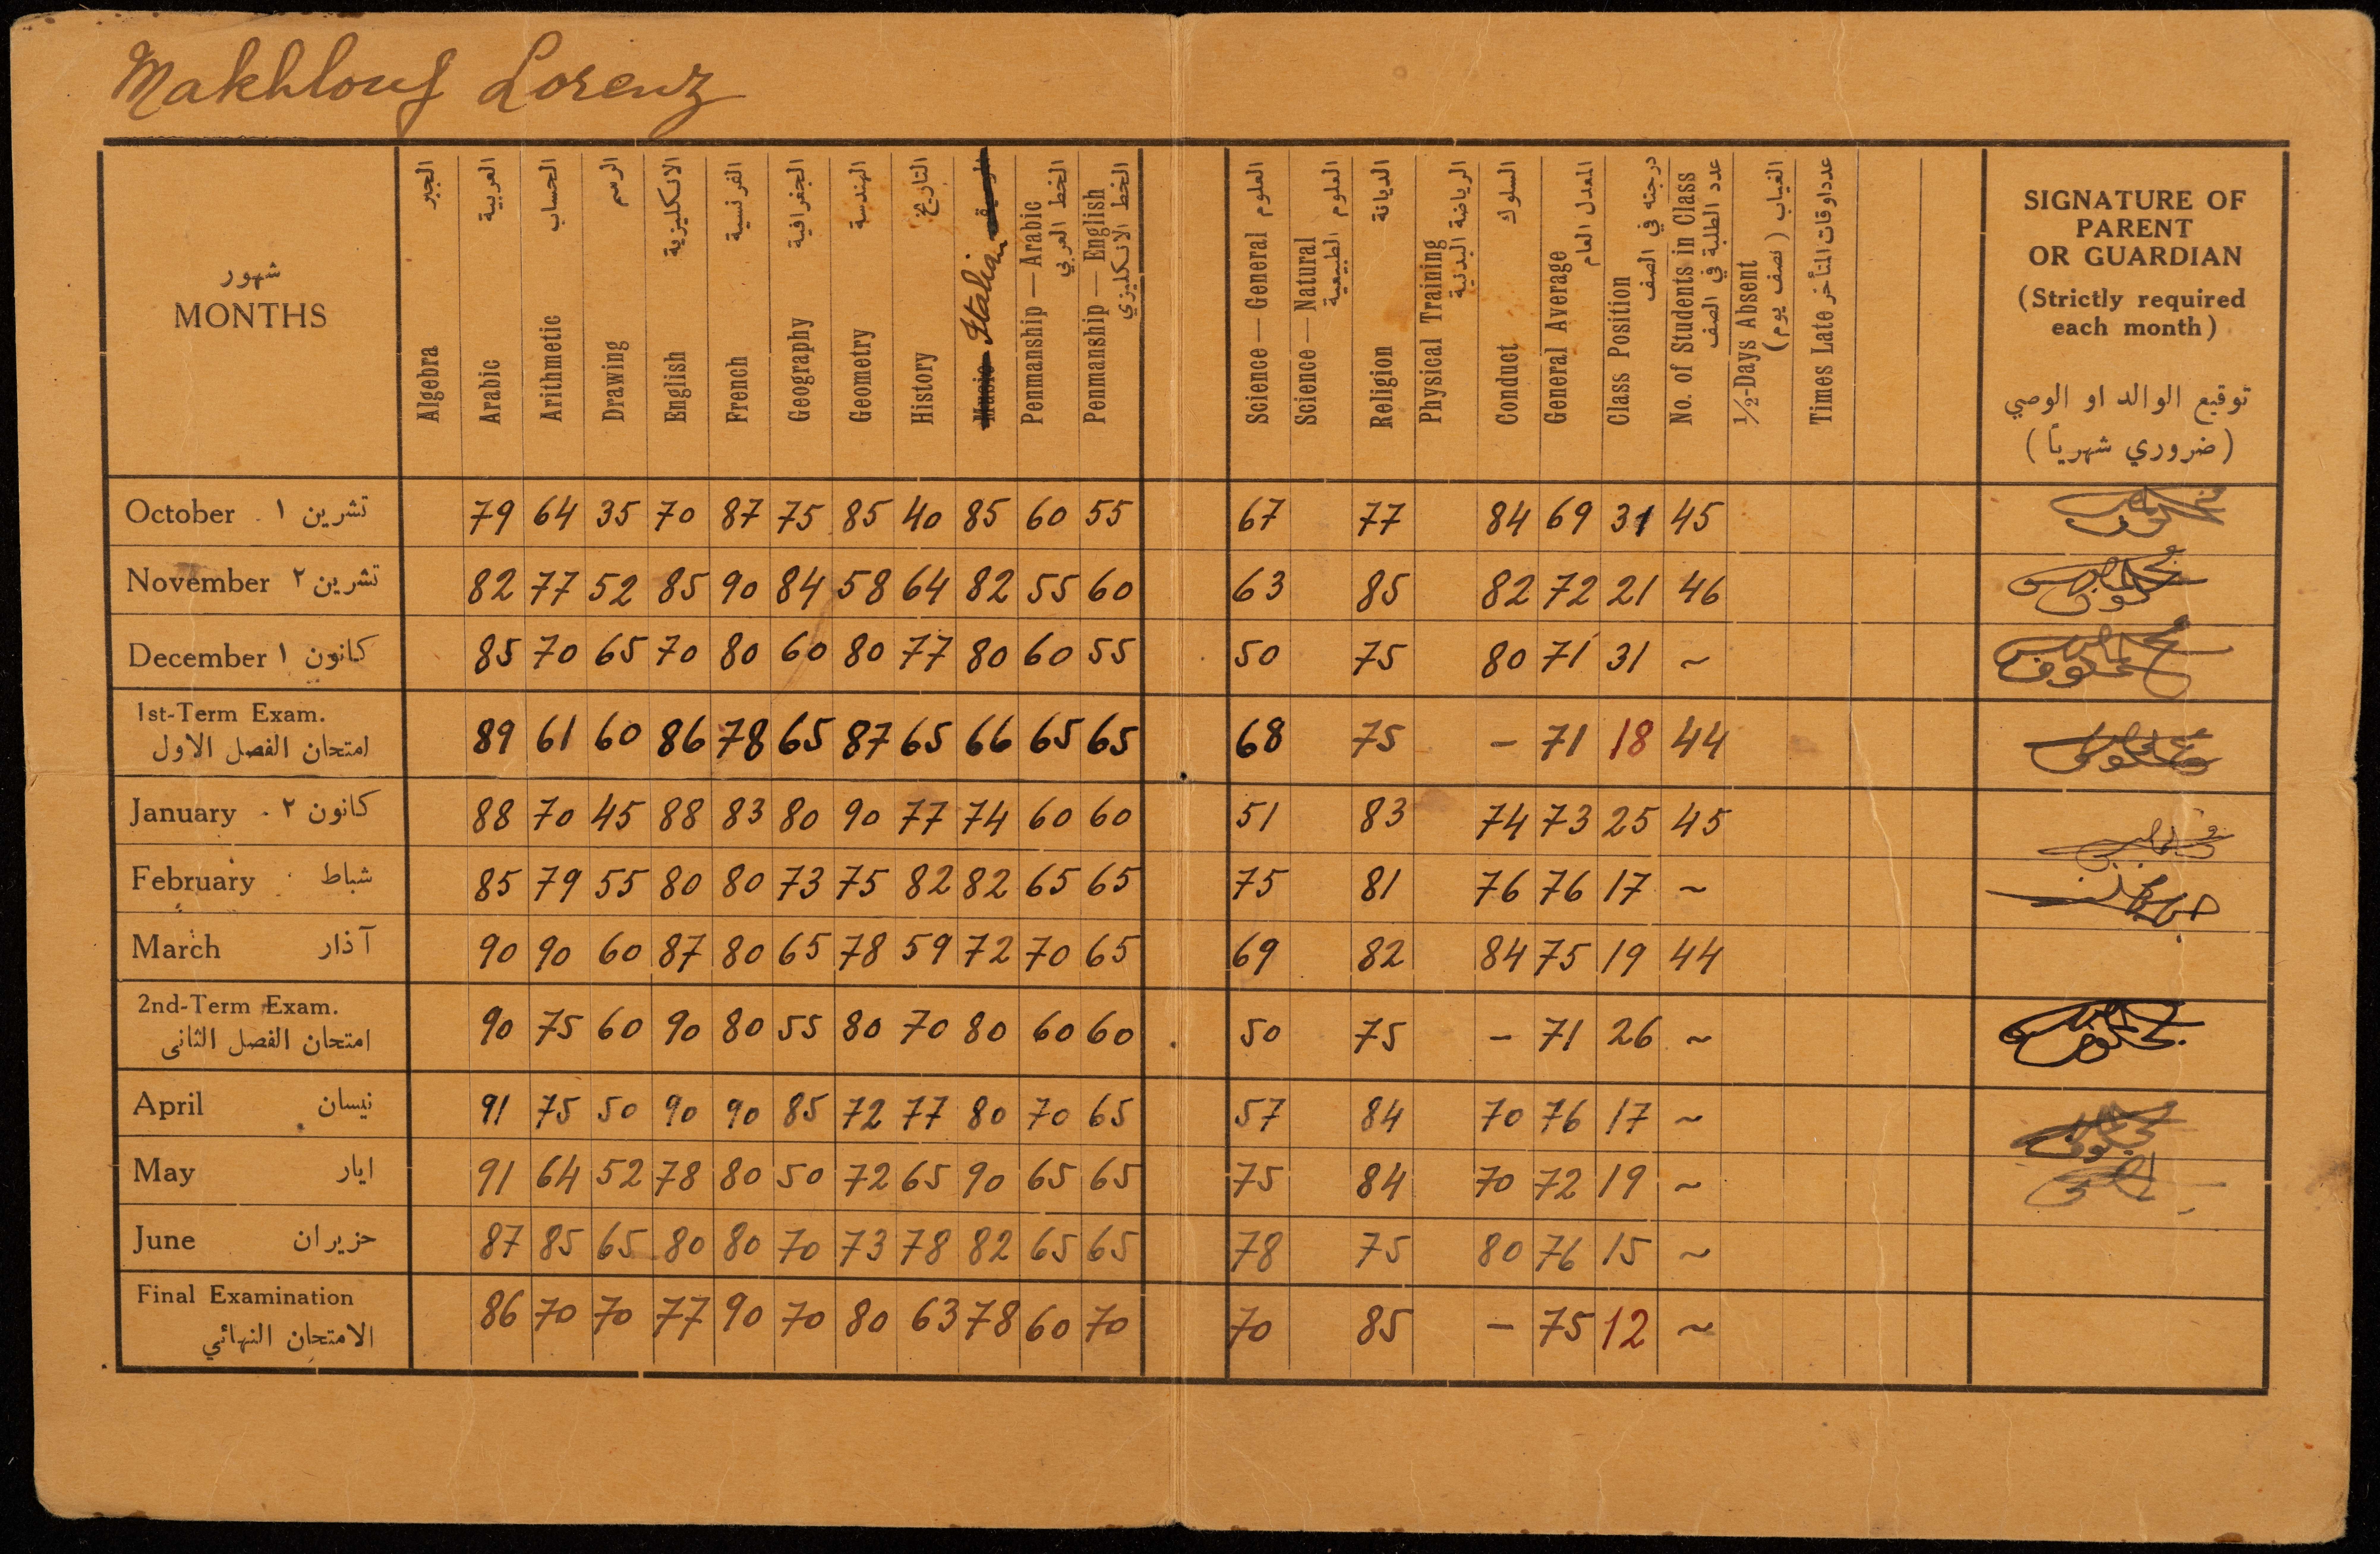 Makhlouf Lorenz
شهور
MONTHS
Algebra الجبر
Arabic العربية
Arithmetic الحساب
Drawing الرسم
English الانكليزية
French الفرنسية
Geography الجغرافية
Geometry الهندسة
History التاريخ
Music Italian
Penmanship — Arabic الخط العربي
Penmanship — English الخط الانكليزي
Science — General العلوم
Science — Natural العلوم الطبيعية
Religion الديانة
Physical Training الرياضة البدنية
Conduct السلوك
General Average المعدل العام
Class Position درجته في الصف
No. of Students in Class عدد الطلبة في الصف
1/2-Days Absent الغياب (نصف يوم)
Times Late عدداوقات التأخر
SIGNATURE OF
PARENT
OR GUARDIAN
(Strictly required
each month)
توقيع الوالد او الوصي
(ضروري شهرياً)
October تشرين ١ 79 64 35 70 87 75 85 40 85 60 55 67 77 84 69 31 45
November تشرين ٢ 82 77 52 85 90 84 58 64 82 55 60 63 85 82 72 21 46
December كانون ١ 85 70 65 70 80 60 80 77 80 60 55 50 75 80 71 31 ~
1st-Term Exam.
امتحان الفصل الاول 89 61 60 86 78 65 87 65 66 65 65 68 75 – 71 18 44
January كانون ٢ 88 70 45 88 83 80 90 77 74 60 60 51 83 74 73 25 45
February شباط 85 79 55 80 80 73 75 82 82 65 65 75 81 76 76 17 ~
March آذار 90 90 60 87 80 65 78 59 72 70 65 69 82 84 75 19 44
2nd-Term Exam.
امتحان الفصل الثانى 90 75 60 90 80 55 80 70 80 60 60 50 75 – 71 26 ~
April نيسان 91 75 50 90 90 85 72 77 80 70 65 57 84 70 76 17 ~
May ايار 91 64 52 78 80 50 72 65 90 65 65 75 84 70 72 19 ~
June حزيران 87 85 65 80 80 70 73 78 82 65 65 78 75 80 76 15 ~
Final Examination
الامتحان النهائي 86 70 70 77 90 70 80 63 78 60 70 70 85 – 75 12 ~